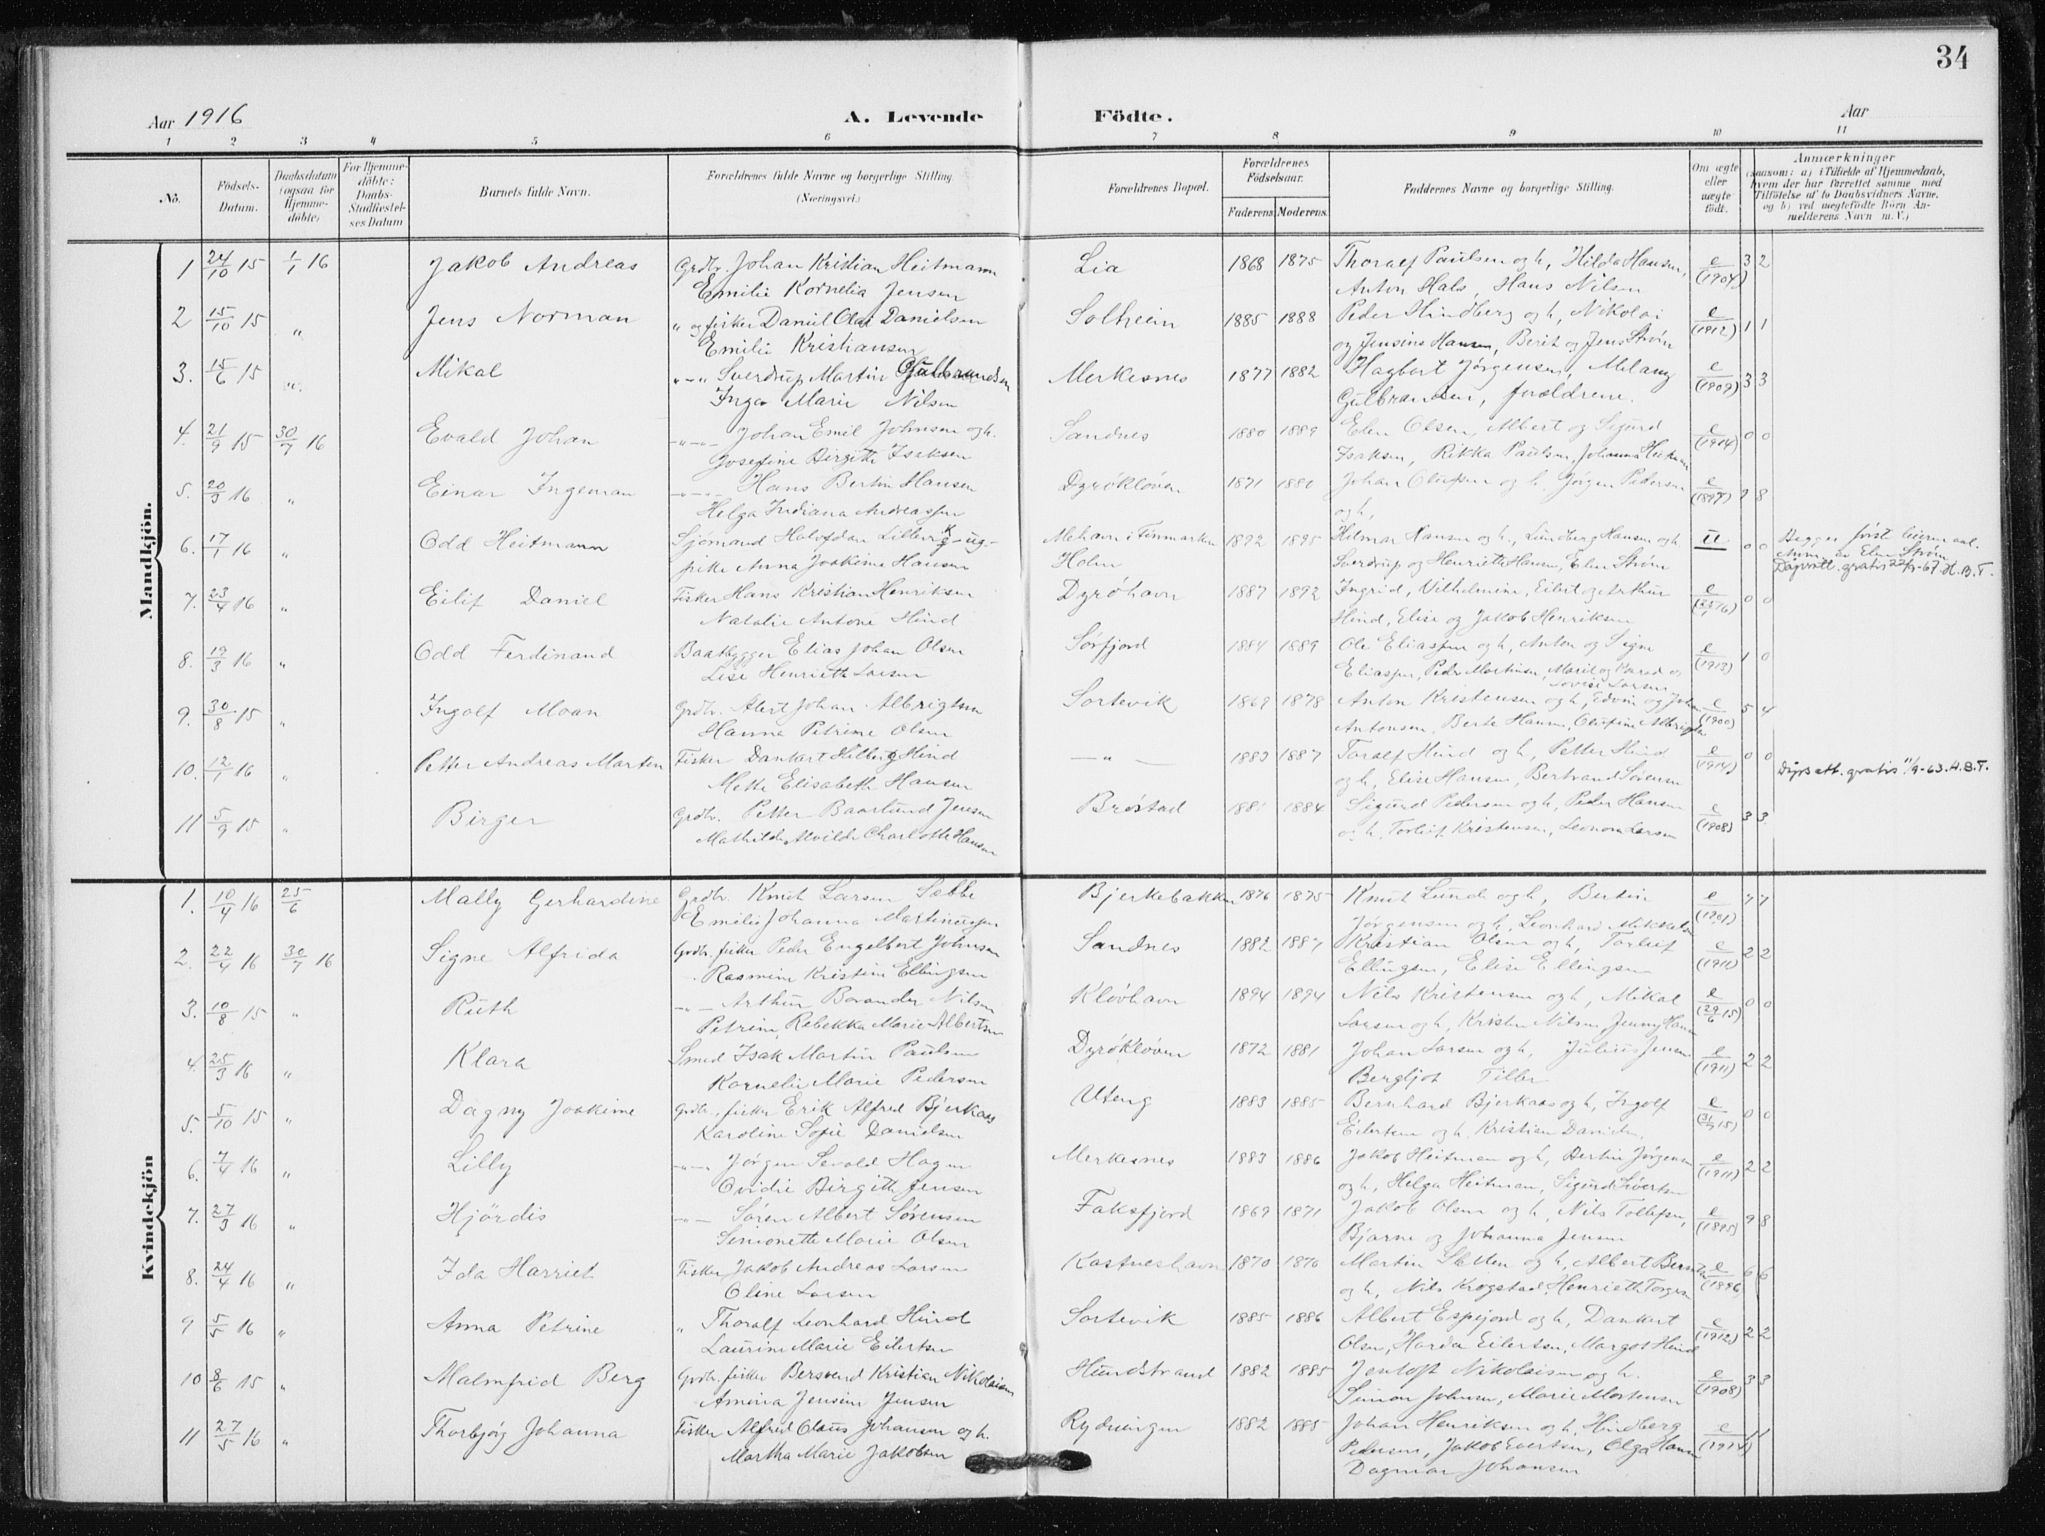 34
Aar 1916 A. Levende Födte. Aar
1 2 3 4 5 6 7 8 9 10 11
No. Födsels-Datum. Daabsdatum (ogsaa for Hjemmedöbte) For Hjemmedöbte: Daabs-Stadfæstelses Datum Barnets fulde Navn. Forældrenes fulde Navne og borgerlige Stilling (Næringsvei.) Forældrenes Bopæl. Forældrenes Födselsaar. Faderens. Moderens. Faddernes Navne og borgerlige Stilling. Om ægte eller uægte födt. Anmærkninger (saasom: a) i Tilfælde af Hjemmedaab, hvem der har forrettet samme med Tilföielse af to Daabsvidners Navne, og b) ved uægtefödte Börn Anmelderens Navn m.V.)
Mandkjön.
1 24/10 15 1/1 16 Jakob Andreas Grdbr. Johan Kristian Heitmann Lia 1868 1875 Thoralf Paulsen og h, Hilda Hansen, e (1904) 3 2
Emilie Kornelia Jensen Anton Hals, Hans Nilsen
2 15/10 15 „ Jens Norman „ og fisker Daniel Olai Danielsen Solheim 1885 1888 Peder Hindberg og h, Nikolai e (1912) 1 1
Emilie Kristiansen og Jensine Hansen, Berit og Jens Strøm
3. 15/6 15 „ Mikal „-„ Sverdrup Martin Gulbrandsen Merkesnes 1877 1882 Hagbert Jørgensen, Melany e (1909) 3 3
Inga Marie Nilsen Gulbrandsen, forældrene.
4. 21/9 15 30/7 16 Evald Johan „-„-„ Johan Emil Johnsen og h. Sandnes 1880 1889 Elen Olsen, Albert og Sigurd e (1914) 0 0
Josefine Birgitte Isaksen Isaksen, Rikka Paulsen, Johanna
5. 20/3 16 „ Einar Ingeman „-„-„ Hans Bertin Hansen Dyrøkløven 1871 1880 Johan Olufsen og h, Jørgen Pedersen e (1897) 9 8
Helga Indiana Andreassen og h,
6. 17/1 16 „ Odd Heitmann Sjømand Halvdan Lillevik og ug- Mehavn i Finmarken 1892 1895 Hilmar Hansen og h, Lundberg Hansen og h II 0 0 Begges først
pike Anna Joakime Hansen Holm Sverdrup og Henriette Hansen, Elen Strøm Anm. av Elen Strøm
Dåpsatt. gratis 22/9-67 H.B.T.
7. 23/4 16 „ Eilif Daniel Fisker Hans Kristian Henriksen Dyrøhavn 1887 1892 Ingrid, Vilhelmine, Eilert og Arthur e 0 0
Natalie Antone Hind Hind, Elise og Jakob Henriksen
8. 19/3 16 „ Odd Ferdinand Baatbygger Elias Johan Olsen Sørfjord 1884 1889 Ole Eliassen og h, Anton og Signe e (1913) 1 0
Lise Henriette Larsen Eliassen, Peder Martinsen, Marit og
Lovise Larsen
9. 30/8 15 „ Ingolf Moan Grdbr. Alert Johan Albrigtsen Sortevik 1869 1878 Anton Kristensen og h, Edvin og Johan e (1900) 5 4
Hanna Petrine Olsen Antonsen, Berte Hansen, Olufine Albrigtsen
10. 12/1 16 „ Petter Andreas Martin Fisker Dankert Hilberg Hind -„- 1883 1887 Toralf Hind og h, Petter Hind e (1914) 0 0 Dåpsatt. gratis 11/9-63. H.B.T.
Mette Elisabeth Hansen og h, Elise Hansen, Bertrand Sørensen
11 5/9 15 „ Birger Grdbr. Petter Baarlund Jensen Brøstad 1881 1884 Sigurd Pedersen og h, Peder Hansen e (1908) 3 3
Mathilde Alvilde Charlotte Hansen og h, Torleif Kristensen, Leonora Larsen
Kvindekjön
1. 10/4 16 25/6 Mally Gerhardine Grdbr. Knut Larsen Sæbbe Bjerkebakken 1876 1875 Knut Lunde og h, Bertin e (1901) 7 7
Emilie Johanna Martinussen Jørgensen og h, Leonhard Mikkelsen
2. 22/4 16 30/7 16 Signe Alfrida Grdbr. fisker Peder Engelbert Johnsen Sandnes 1882 1887 Kristian Olsen og h, Torleif e (1911) 2 2
Rasmine Kristine Ellingsen Ellingsen, Elise Ellingsen
3. 10/8 15 „ Ruth -„- Arthur Bovander Nilsen Kløvhavn 1894 1894 Nils Kristensen og h, Mikal e (29/6 15) 0 0
Petrine Rebekka Marie Albertsen Larsen og h, Kristen Nilsen, Jenny Hansen
4. 25/3 16 „ Klara Smed Isak Martin Paulsen Dyrøkløven 1872 1881 Johan Larsen og h, Julius Jensen e (1911) 2 2
Kornelie Marie Pedersen Bergljot Tiller
5. 5/10 15 „ Dagny Joakime Grdbr., fisker Erik Alfred Bjerkaas Uteng 1883 1885 Bernhard Bjerkaas og h, Ingolf e 0 0
Karoline Sofie Danielsen Eilertsen og h, Kristian Danielsen,
6. 7/4 16 „ Lilly „-„ Jørgen Sevald Hagen Merkesnes 1883 1886 Jakob Heitman og h, Bertin Jørgensen e (1911) 2 2
Ovidie Birgitte Jensen og h, Helga Heitman, Sigurd Sivertsen
7. 27/3 16 „ Hjördis „-„ Søren Albert Sørensen Faksfjord 1869 1871 Jakob Olsen og h, Nils Tollefsen, e (1895) 9 8
Simonette Marie Olsen Bjarne og Johanna Jensen
8. 24/4 16 „ Ida Harriet Fisker Jakob Andreas Larsen Kastneshavn 1870 1870 Martin Sletten og h, Albert Berntsen e (1896) 6 6
Oline Larsen og h, Nils Krogstad, Henriette Torgersen
9 5/5 16 „ Anna Petrine „ Thoralf Leonhard Hind Sortevik 1885 1886 Albert Espejord og h, Dankert e (1912) 2 2
Laurine Marie Eilertsen Olsen, Harda Eilertsen, Margot Hind
10 8/6 15 „ Malmfrid Berg Grdbr. fisker Bersvend Kristian Nikolaisen Hundstrand 1882 1885 Jentoft Nikolaisen og h. e (1908) 3 3
Amoria Jensine Jensen Simon Johnsen, Marie Mortensen
11 27/5 16 „ Thorbjörg Johanna Fisker Alfred Claus Johansen og h. Rydningen 1882 1885 Johan Henriksen og h, Hindberg e 1 1
Martha Marie Jakobsen Pedersen, Jakob Evertsen, Olga Hansen
Dagmar Johansen